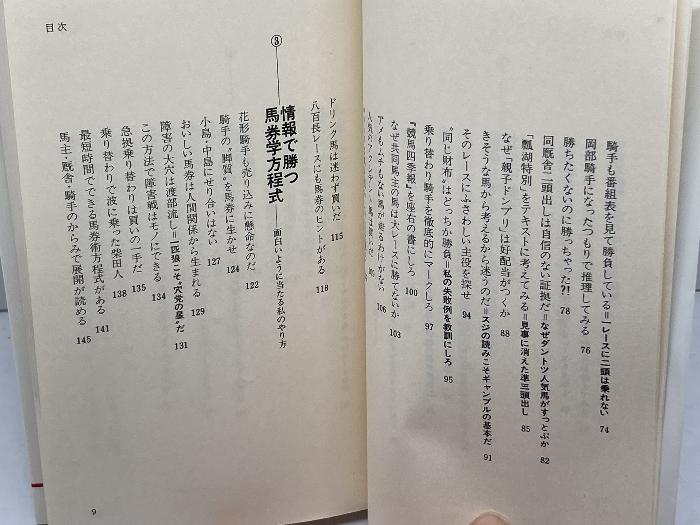 騎手も番組表を見て勝負している=一レースに二頭は乗れない 74
岡部騎手になったつもりで推理してみる 76
勝ちたくないのに勝っちゃった?! 78
同厩舎二頭出しは自信のない証拠だ=なぜダントツ人気馬がすっとぶか 82
「瓢湖特別」をテキストに考えてみる=見事に消えた準三頭出し 85
なぜ「親子ドンブリ」は好配当がつくか 88
きそうな馬から考えるから迷うのだ=スジの読みこそギャンブルの基本だ 91
そのレースにふさわしい主役を探せ 94
"同じ財布"はどっちか勝負=私の失敗例を教訓にしろ 95
乗り替わり騎手を徹底的にマークしろ 97
『競馬四季報』を座右の書にしろ 100
なぜ共同馬主の馬は大レースに勝てないか 103
106
ドリンク馬は迷わず買いだ 115
八百長レースにも馬券のヒントがある 118
③ 情報で勝つ馬券学方程式――面白いように当たる私のやり方
花形騎手も売り込みに懸命なのだ 122
騎手の"脚質"を馬券に生かせ 124
小島・中島にせり合いはない 127
おいしい馬券は人間関係から生まれる 129
障害の大穴は渡部流し=一匹狼こそ"穴党の星"だ 131
この方法で障害戦はモノにできる 134
急拠乗り替わりは買いの一手だ 135
乗り替わりで波に乗った柴田人 138
最短時間でできる馬券術方程式がある 141
馬主・厩舎・騎手のからみで展開が読める 145
目次
9